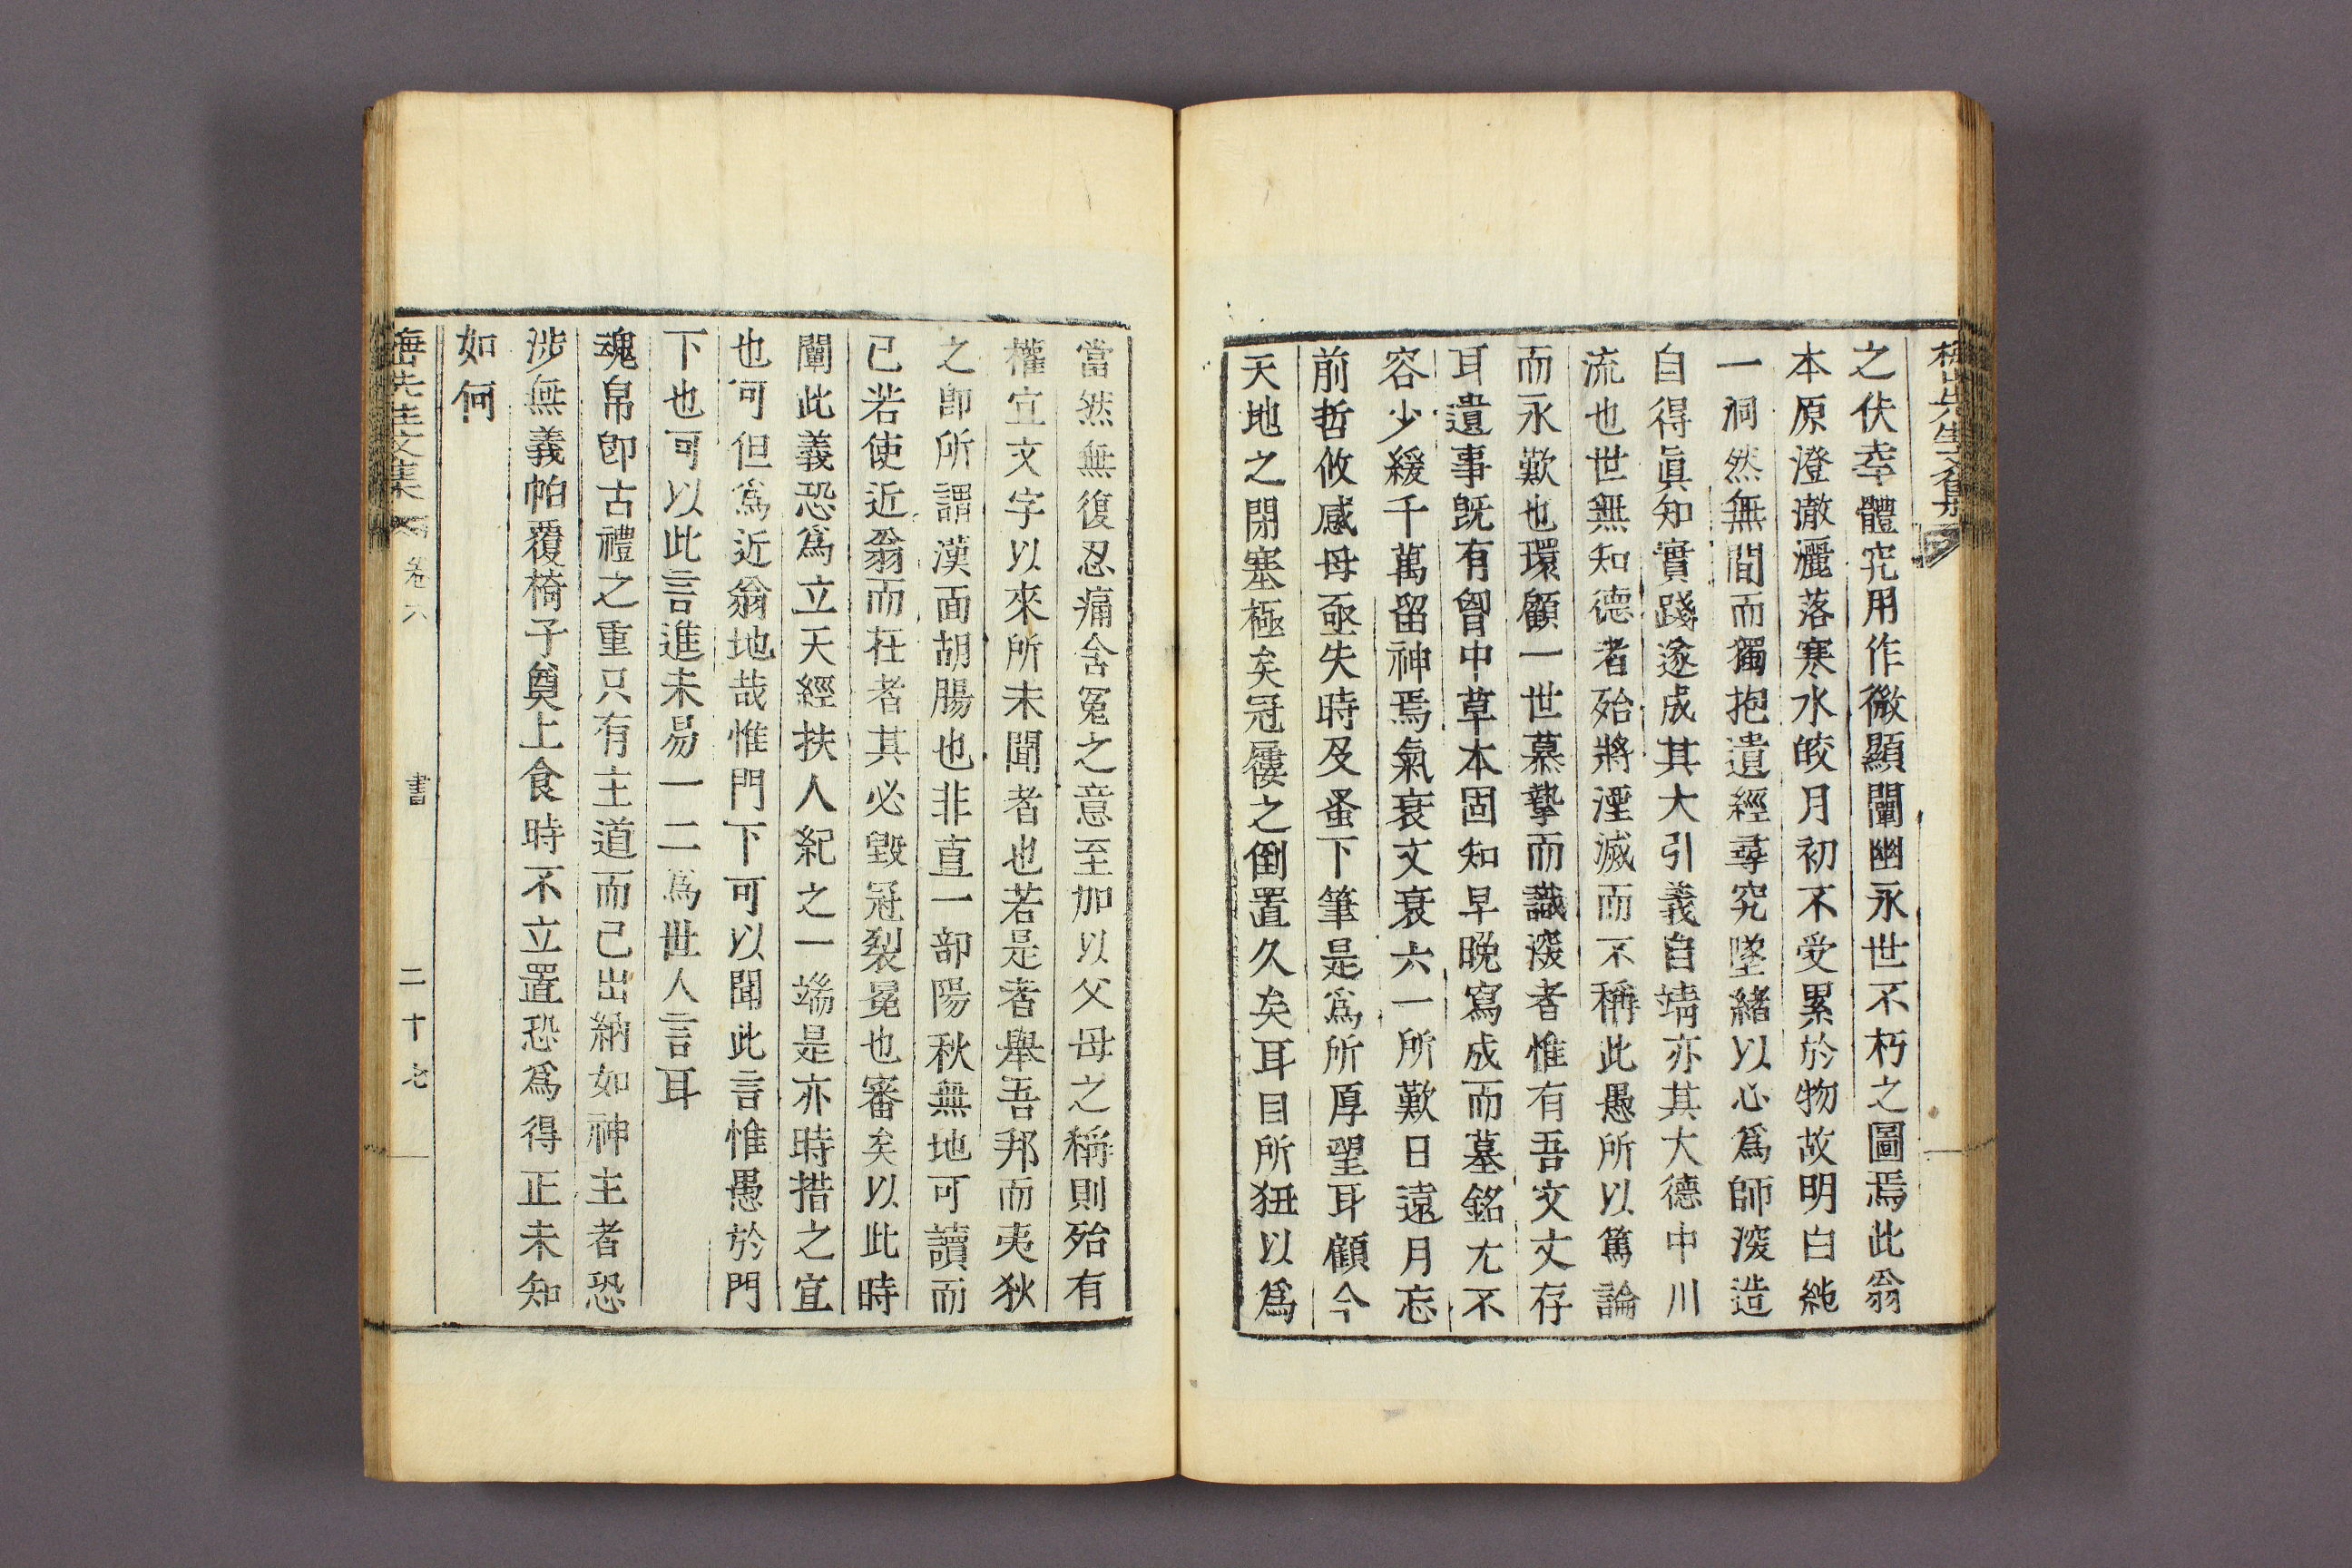 之伏幸體究用作微顯闡幽永世不朽之圖焉此翁
本原澄澈灑落寒水皎月初不受累於物故明白純
一洞然無間而獨抱遺經尋究墜緖以心爲師深造
自得眞知實踐遂成其大引義自靖亦其大德中川
流也世無知德者殆將湮滅而不稱此愚所以篤論
而永歎也環顧一世慕摯而識深者惟有吾文丈存
耳遺事旣有曾中草本固知早晩寫成而墓銘尤不
容少緩千萬留神焉氣衰文衰六一所歎日遠月忘
前哲攸感毋亟失時及蚤下筆是爲所厚望耳顧今
天地之閉塞極矣冠屨之倒置久矣耳目所狃以爲
當然無復忍痛含寃之意至加以父母之稱則殆有
權宜文字以來所未聞者也若是者擧吾邦而夷狄
之卽所謂漢面胡腸也非直一部陽秋無地可讀而
已若使近翁而在者其必毁冠裂冕也審矣以此時
闡此義恐爲立天經扶人紀之一端是亦時措之宜
也何但爲近翁地哉惟門下可以聞此言惟愚於門
下也可以此言進未易一二爲世人言耳
魂帛卽古禮之重只有主道而已出納如神主者恐
涉無義帕覆椅子奠上食時不立置恐爲得正未知
如何
先生文集 卷六 書 二十七